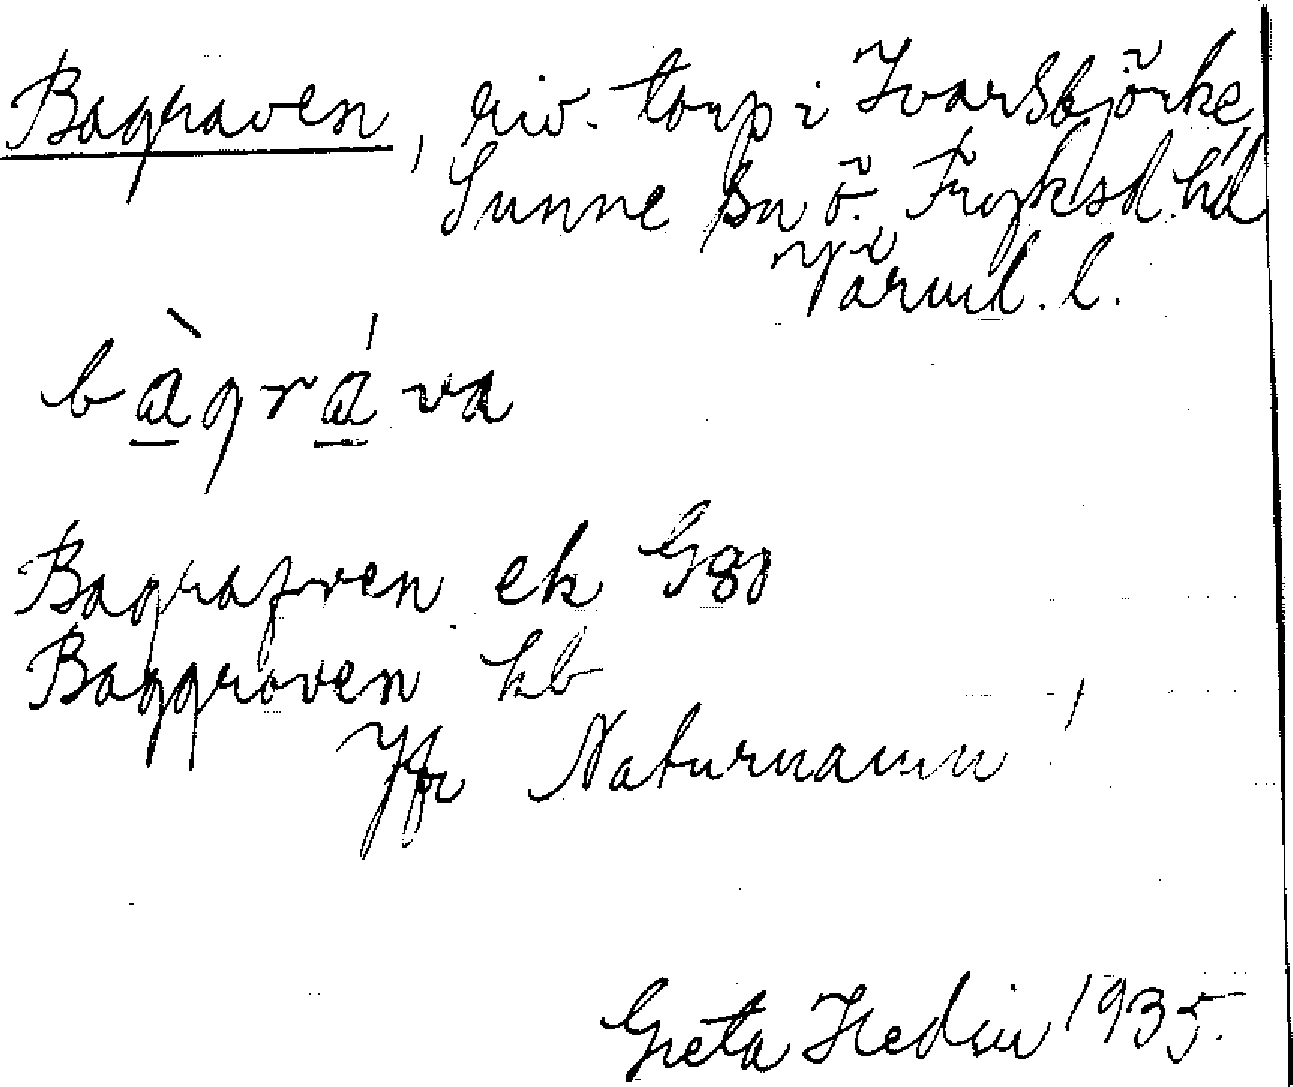 Bagraven, riv. torp i Ivarsbjörke,
Sunne sn Ö. Fryksd. hd
Värml. l.
bàgráva
Bagrafven ek G80
Baggraven kb
Jfr Naturnamn!
Greta Hedin 1935.